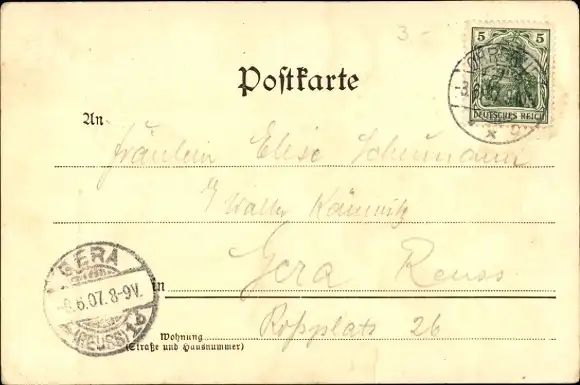 3.-
5 5
DEUTSCHES REICH
Postkarte
An
Fräulein Elise Schumann
Walter
Gera Reuss
in
Roßplatz 26
Wohnung
(Straße und Hausnummer)
GERA
6.07.8-9V.
(REUSS) 1b